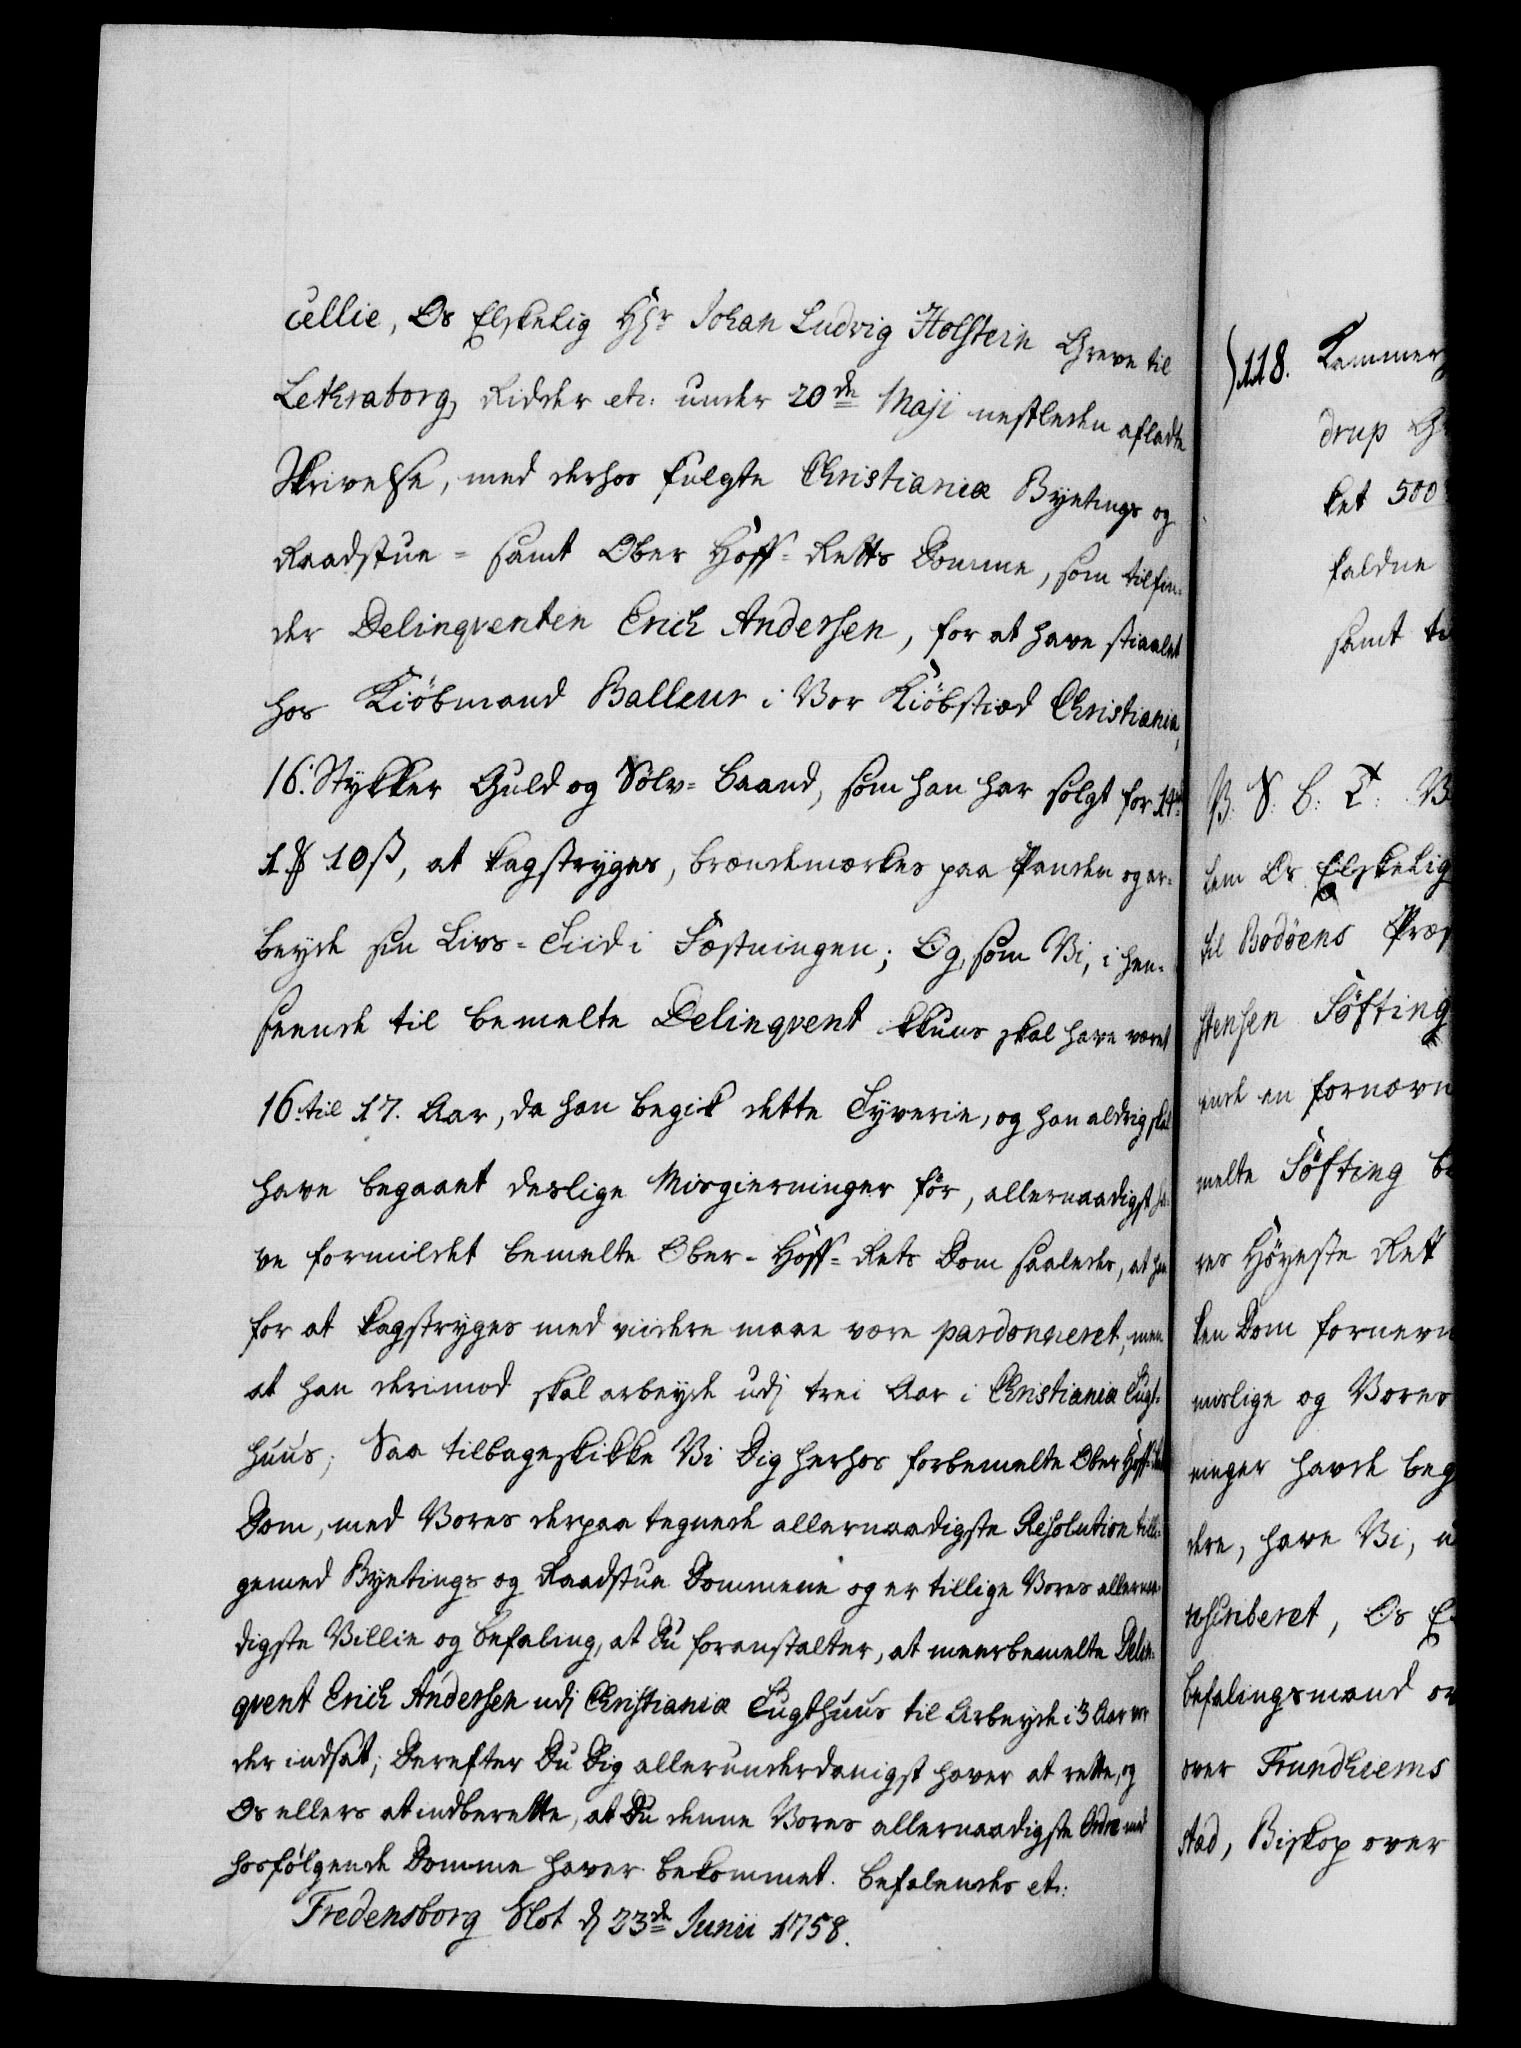 cellie, Os Elskelig Hr Johan Ludvig Holstein Greve til
Lethraborg, Ridder etc: under 20de Maji nestleden afladte
Skrivelse, med derhos fulgte Christianiæ Byetings og
Raadstue- samt Ober Hoff-Retts Domme, som tilfin-
der Delinqventen Erich Andersen, for at have stiaalet
hos Kiöbmand Balleur i Vor Kiöbstæd Christiania,
16. Stykker Guld og Sölv-Baand, som han har solgt for 14
1 10 ß, at kagstryges, brændemærkes paa Panden og ar-
beyde sin Livs-Tiid i Fæstningen; Og, som Vi, i hen-
seende til bemelte Delinqvent ikkuns skal have været
16. til 17. Aar, da han begik dette Tyverie, og han aldrig skal
have begaaet deslige Misgierninger för, allernaadigst ha-
ve formildet bemelte Ober-Hoff-Rets Dom saaledes, at han
for at kagstryges med viidere maae være pardonneret, men
at han derimod skal arbeyde udj trei Aar i Christianiæ Tugt-
huus; Saa tilbageskikke Vi Dig herhos forbemelte Ober Hoff-Rets
Dom, med Vores derpaa tegnede allernaadigste Resolution tilli-
gemed Byetings og Raadstue Dommene og er tillige Vores allernaa-
digste Villie og Befaling, at Du foranstalter, at meerbemelte Delin-
qvent Erich Andersen udj Christianiæ Tugthuus til Arbeyde i 3 Aar vor-
der indsat; Derefter Du Dig allerunderdanigst haver at rette, og
Os ellers at indberette, at Du denne Vores allernaadigste Ordre med
hosfølgende Domme haver bekommet. Befalendes etc:
Fredensborg Slot d 23de Junii 1758.
118. Kammer
drup
ket 500
faldne
samt
V. S. B. T. V
lem Os Elskelig
til Bodöens Præs
stensen Söfting
ende en fornævn
melte Söfting be
res Höyeste Ret
ken Dom fornem
mislige og Vores
ninger havde beg
dere, have Vi, u
nscriberet, Os E
Befalingsmand ov
over Trundhiems
stad, Biskop over